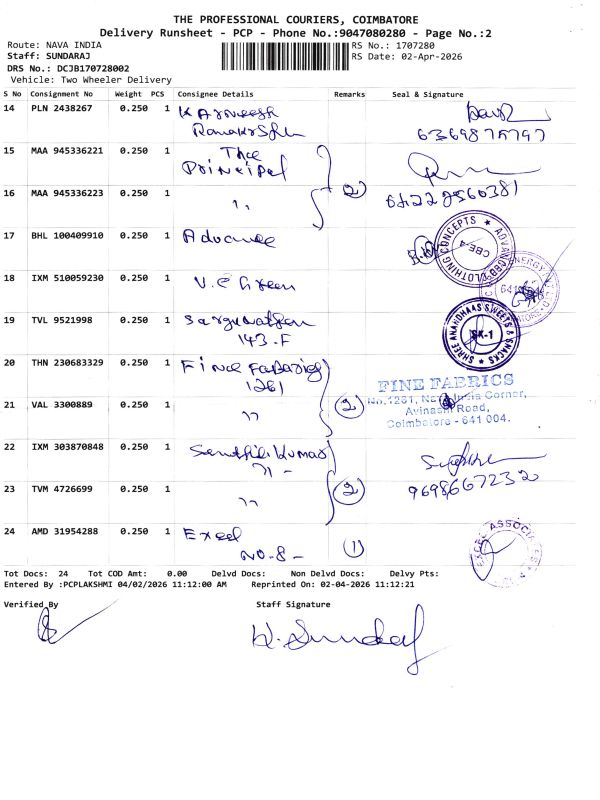 THE PROFESSIONAL COURIERS, COIMBATORE
Delivery Runsheet - PCP - Phone No.:9047080280 - Page No.:2
Route: NAVA INDIA
RS No.: 1707280
Staff: SUNDARAJ
RS Date: 02-Apr-2026
DRS No.: DCJB170728002
Vehicle: Two Wheeler Delivery
S No Consignment No Weight PCS Consignee Details Remarks Seal & Signature
14 PLN 2438267 0.250 1
15 MAA 945336221 0.250 1 The
Principal
16 MAA 945336223 0.250 1 ,, 2
17 BHL 100409910 0.250 1 Advance
ADVANCED CLOTHING CONCEPTS CBE-4
18 IXM 510059230 0.250 1 V.C Green
19 TVL 9521998 0.250 1
143-F
SHREE ANANDHAAS SWEETS & SNACKS SK-1
20 THN 230683329 0.250 1
1281
FINE FABRICS
No.1281, Nava India Corner,
Avinashi Road,
Coimbatore - 641 004.
21 VAL 3300889 0.250 1 ,, 2
22 IXM 303870848 0.250 1 Senthil Kumar
71 -
23 TVM 4726699 0.250 1 ,, 2
9698667232
24 AMD 31954288 0.250 1 Excel
NO-8- 1
Tot Docs: 24 Tot COD Amt: 0.00 Delvd Docs: Non Delvd Docs: Delvy Pts:
Entered By :PCPLAKSHMI 04/02/2026 11:12:00 AM Reprinted On: 02-04-2026 11:12:21
Verified By
Staff Signature